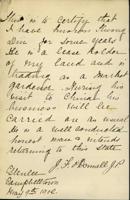 This is to certify that
I have known Kwong
Din for some years.
He is a lease holder
of my land and is
trading as a market
gardener. During his
visit to China his
business will be
carried on as usual
He is a well conducted
honest man & intends
returning to this State
J. F. O'Donnell J.P.
Campbelltown
May 9th 1916